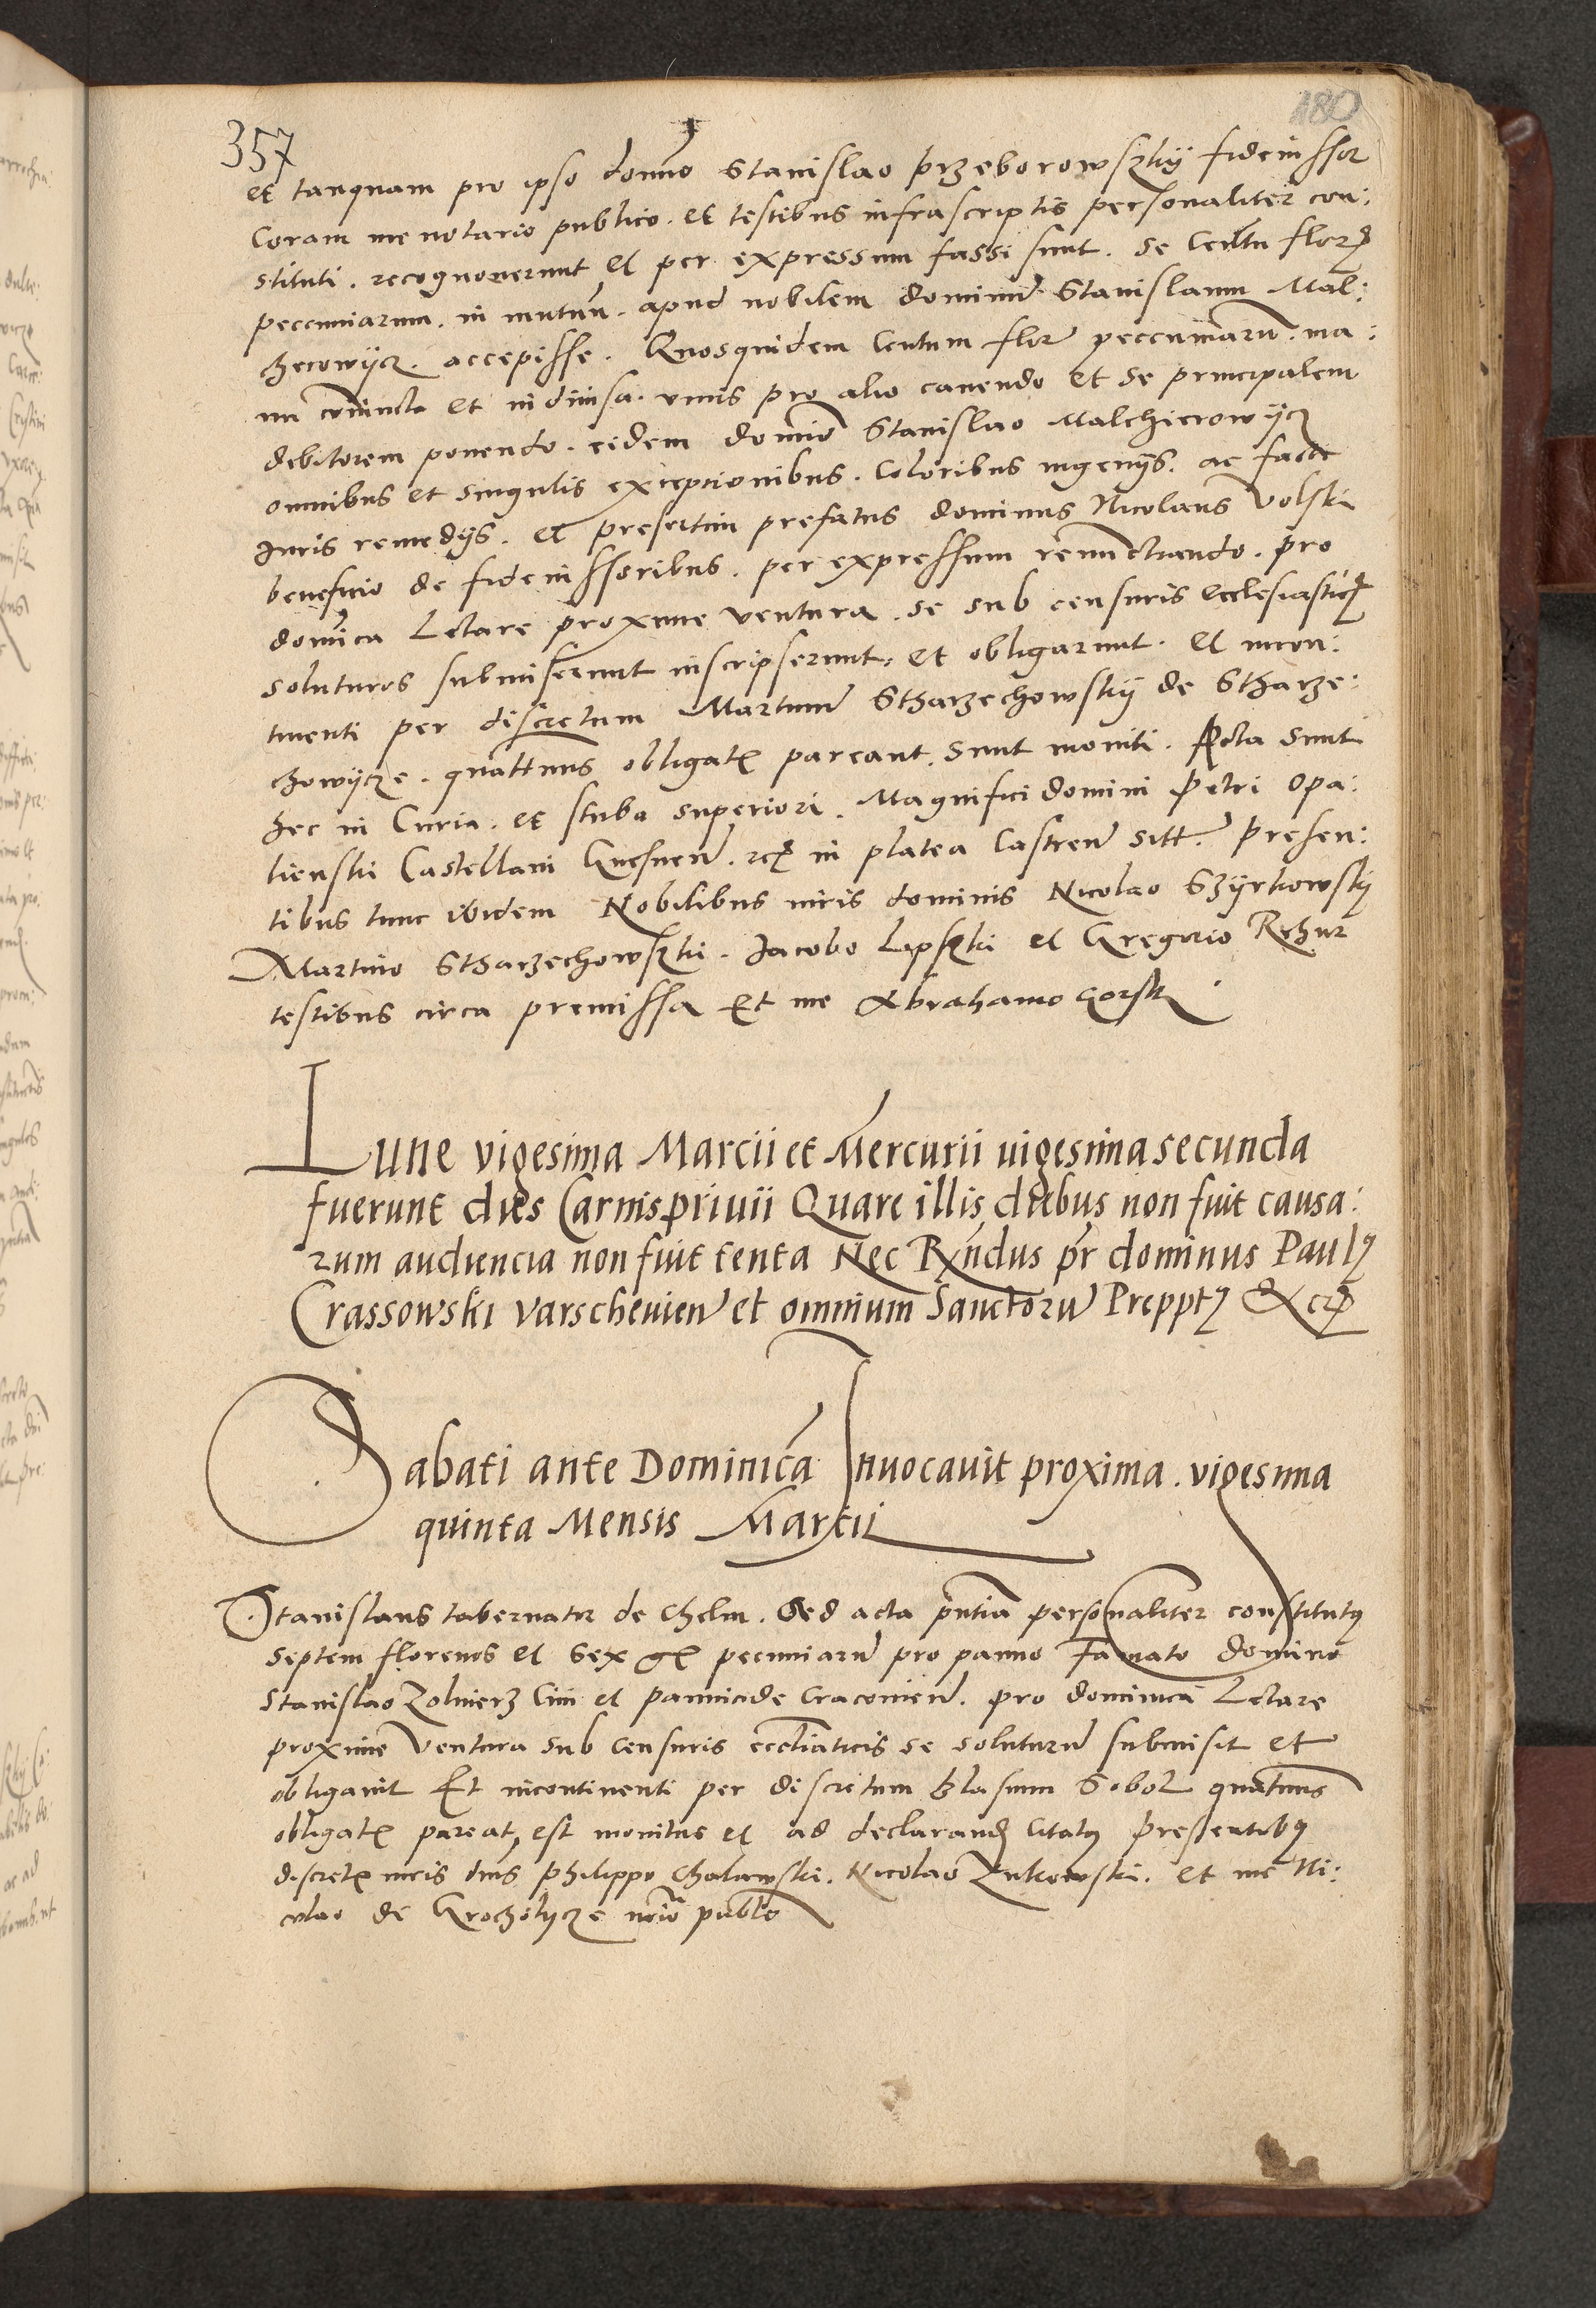 180
357
et tanquam pro ipso domino Stanislao Przeborowszkij fideiussor
Coram me notario publico. et testibus infrascriptis personaliter con:
stituti. recognoverunt et per expressum fassi sunt. se Centu flor
peccuniarum. in mutuu. apud nobilem dominu Stanislaum Mal:
cherowijcz. accepisse. Quosquidem Centum flor peccuniaru. ma:
nu coniuncta et indiuisa. vnus pro alio cauendo et se principalem
debitorem ponendo. eidem domino Stanislao Malchierowijcz
omnibus et singulis exceptionibus. Coloribus ingenijs. ac facti
Iuris remedijs. et presertim prefatus dominus Nicolaus Volski
beneficio de fideiussoribus. per expressum renunctiando. pro
domica Letare proxime ventura. se sub censuris ecclesiastic
soluturos submiserunt inscripserunt. et obligarunt. et incon:
tinenti per discretum Martinu Stharzechowskij de Stharze:
chowijcze. quattenus obligat pareant. sunt moniti. Acta sunt
hec in Curia. et stuba superiori. Magnifici domini Petri Opa:
lienski Castellani Gnesnen. in platea Castren sitt. Presen:
tibus tunc ibidem Nobilibus viris dominis Nicolao Szijrkowskij
Martino Stharzechowszki. Iacobo Lipszki et Gregorio
testibus circa premissa Et me Abrahamo Gorski.
Lune vigesima Marcii et Mercurii vigesima secunda
fuerunt dies Carnisprivii Quare illis diebus non fuit causa:
rum audiencia non fuit tenta Nec Rndus pr dominus Paul9
Crassowski varschevien et omnium Sanctoru Preppt9
Sabati ante Dominica Invocavit proxima. vigesima
quinta Mensis Marcii
Stanislaus tabernator de Chelm. Ad acta pntia personaliter constitut9
septem florenos et sex gr pecuniaru pro panno Famato domino
Stanislao Zolnierz Civi et pannicide Cracovien. pro dominica Letare
proxime Ventura sub Censuris eccliaticis se soluturu submisit et
obligauit Et incontinenti per discretum Blasium Sobol quatenus
obligat pareat, est monitus et ad declarand Citat9 Presentib9
discret viris dnis Philippo Chalawski. Nicolao Zukowski. et me Ni:
colao de Grocholycze notrio publco